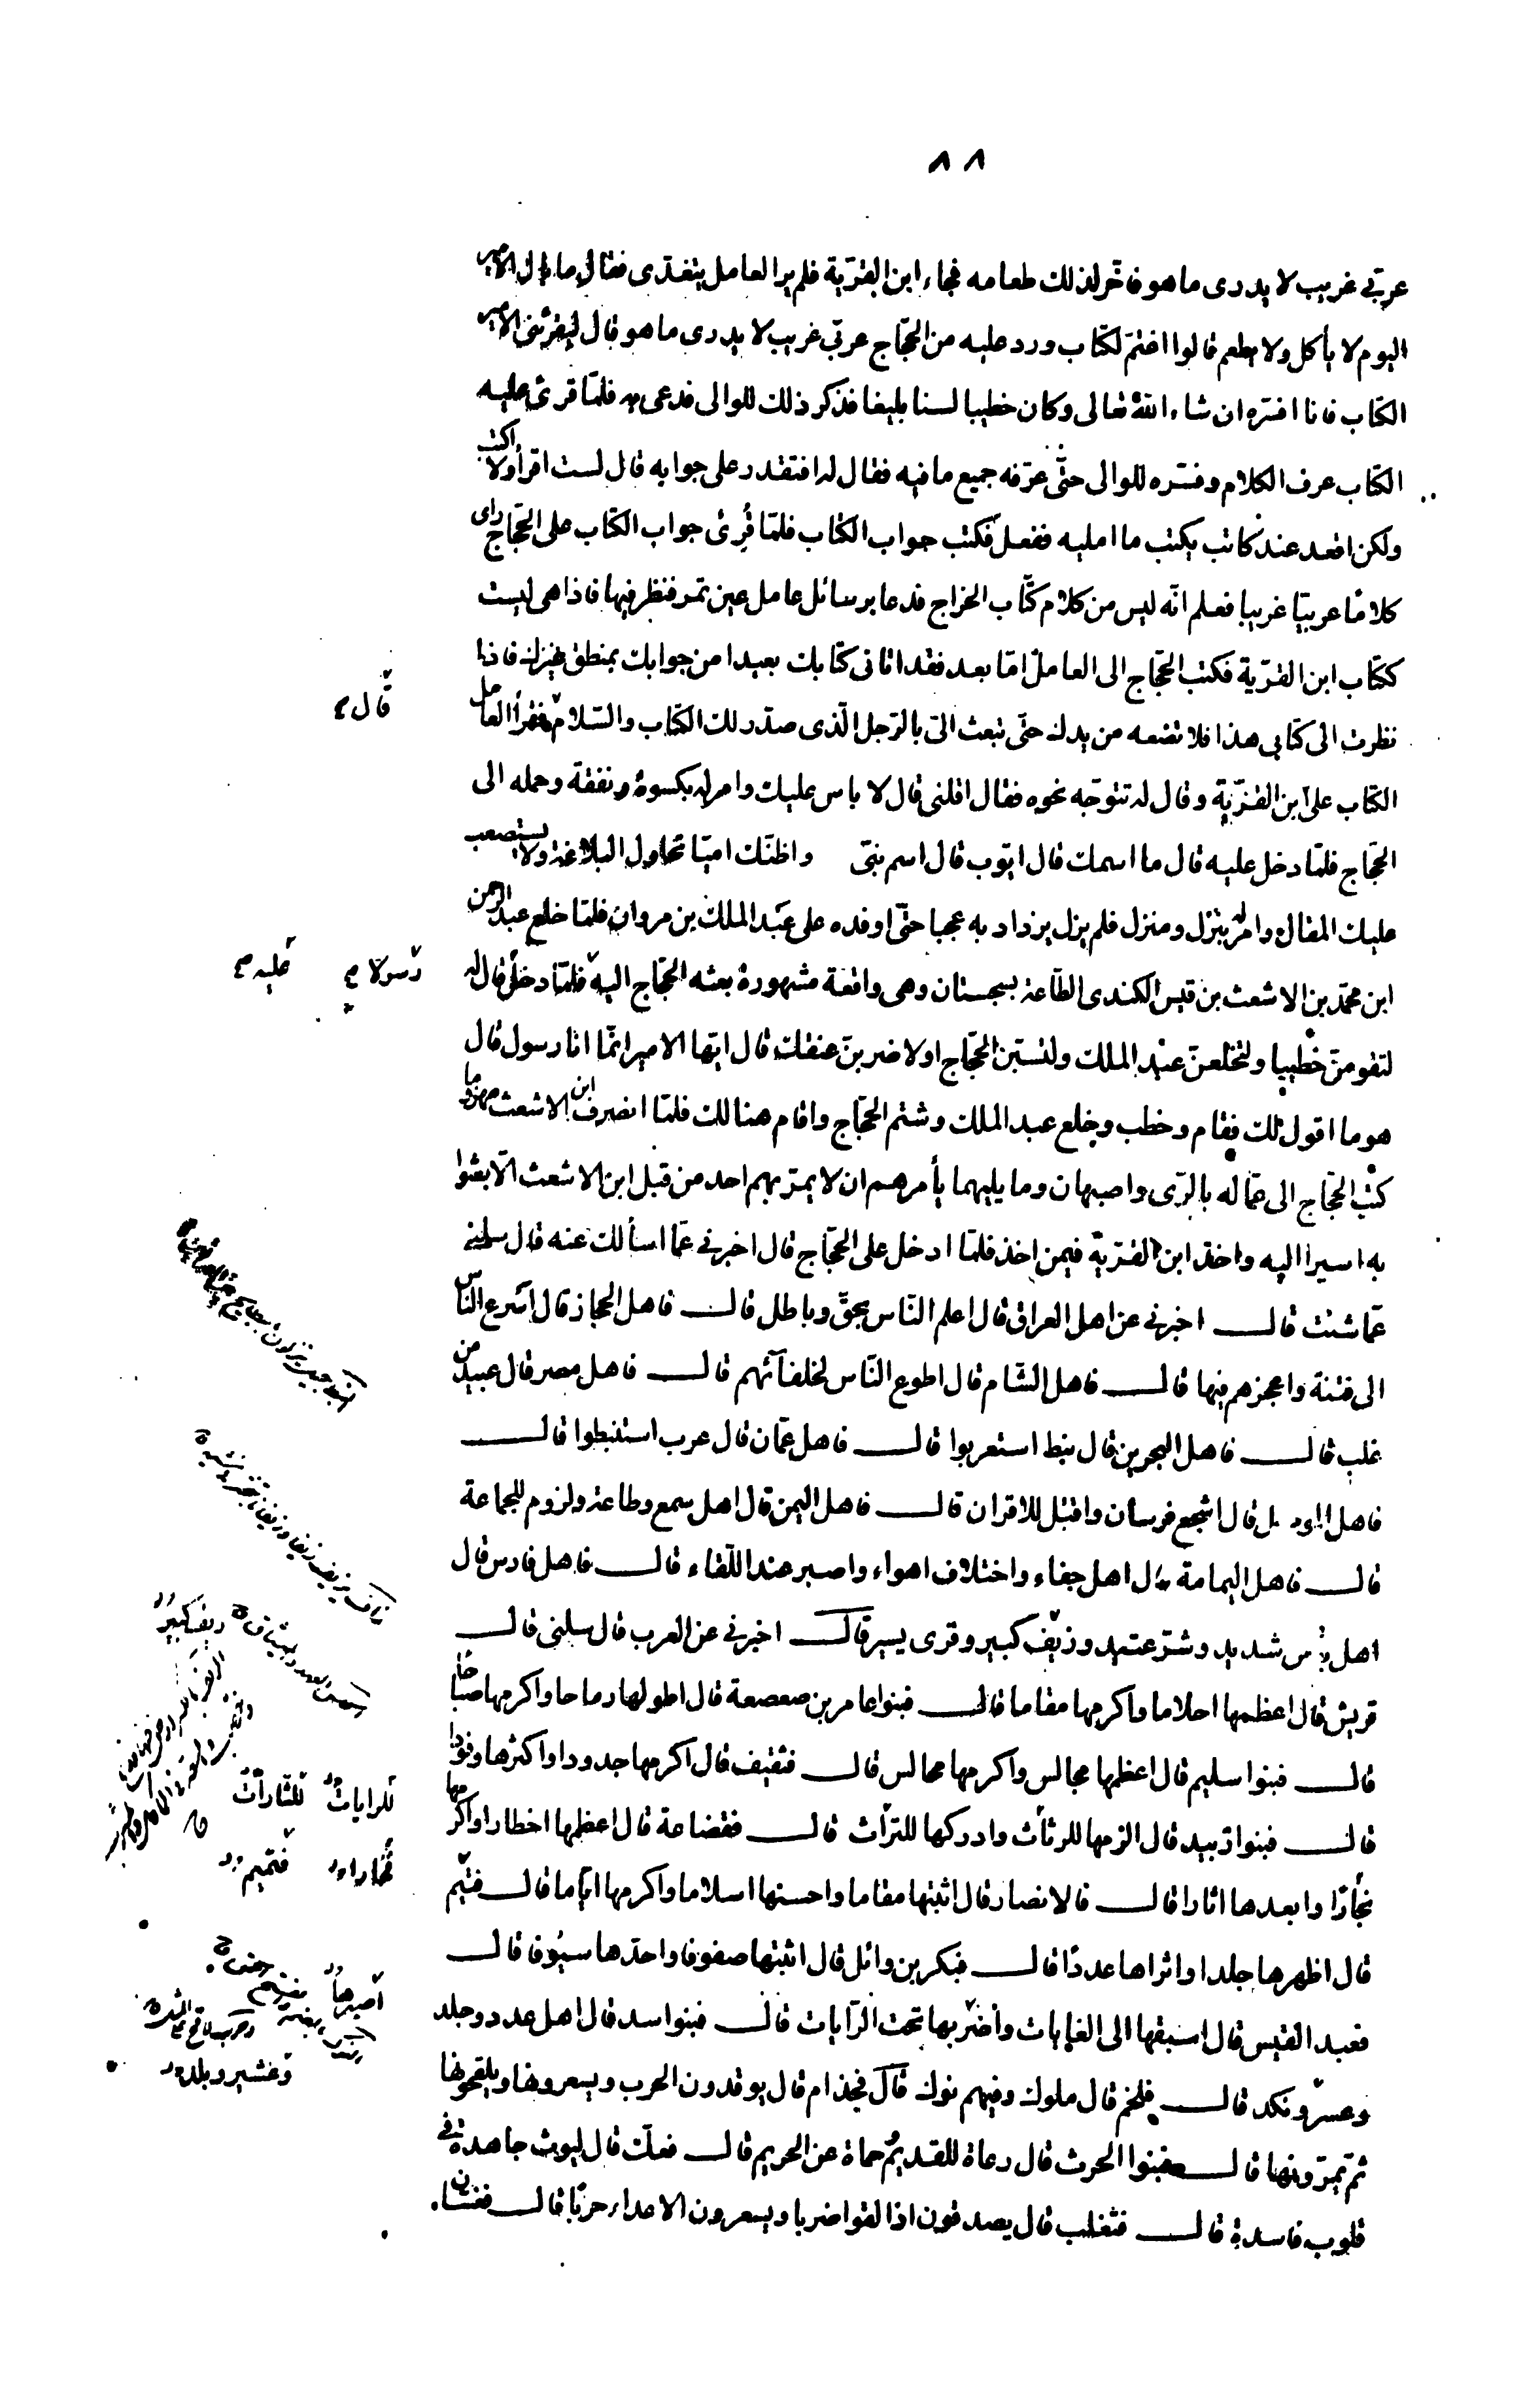 ٨٨
عربى غريب لا يدرى ما هو فاخّر لذلك طعامه فجاء ابن القرّية فلم ير العامل يتغدّى فقال ما بال الامير
اليوم لا يأكل ولا يطعم قالوا اغتمّ لكتاب ورد عليه من الحجّاج عربى غريب لا يدرى ما هو قال ليقرئنى الامير
الكتاب فانا افسّره ان شاء اللّه تعالى وكان خطيبا لسنا بليغا فذكر ذلك للوالى فدعى به فلمّا قرئ عليه
الكتاب عرف الكلام وفسّره للوالى حتّى عرّفه جميع ما فيه فقال له افتقدر على جوابه قال لست اقرأ ولا اكتب
ولكن اقعد عند كاتب يكتب ما امليه ففعل فكتب جواب الكتاب فلمّا قُرِئ جواب الكتاب على الحجّاج رأى
كلامًا عربيّا غريبا فعلم انّه ليس من كلام كتّاب الخراج فدعا برسائل عامل عين تمر فنظر فيها فاذا هى ليست
ككتاب ابن القرّية فكتب الحجّاج الى العامل امّا بعد فقد اتانى كتابك بعيدا من جوابك بمنطق غيرك فاذا
نظرت الى كتابى هذا فلا تضعه من يدك حتّى تبعث الىّ بالرّجل الّذى صدّر لك الكتاب والسّلام فقرأ العامل
قال
الكتاب على ابن القرّية وقال له تتوجّه نحوه فقال اقلنى قال لا بأس عليك وامر له بكسوة ونفقة وحمله الى
الحجّاج فلمّا دخل عليه قال ما اسمك قال ايّوب قال اسم نبىّ واظنّك اميّا تحاول البلاغة ولا يستصعب
عليك المقال وامر له بنزل ومنزل فلم يزل يزداد به عجبا حتّى اوفده على عبد الملك بن مروان فلمّا خلع عبد الرحمن
ابن محمّد بن الاشعث بن قيس الكندى الطّاعة بسجستان وهى واقعة مشهورة بعثه الحجّاج اليه فلمّا دخل قال له
رسولا
عليه
لتقومنّ خطيبا ولتخلعنّ عبد الملك ولتسبّن الحجّاج او لاضربنّ عنقك قال ايّها الامير انّما انا رسول قال
هو ما اقول لك فقام وخطب وخلع عبد الملك وشتم الحجّاج واقام هنالك فلمّا انصرف ابن الاشعث مهزوما
كتب الحجّاج الى عمّاله بالرّى واصبهان وما يليهما يأمرهم ان لا يمرّ بهم احد من قبل ابن الاشعث الّا بعثوا
به اسيرا اليه واخذ ابن القرّيّة فيمن اخذ فلمّا ادخل على الحجّاج قال اخبرنى عمّا اسألك عنه قال سلنى
عمّا شئت قال اخبرنى عن اهل العراق قال اعلم النّاس بحقّ وباطل قال فاهل الحجاز قال اسرع النّاس
الى فتنة واعجزهم فيها قال فاهل الشّام قال اطوع النّاس لخلفآئهم قال فاهل مصر قال عبيد من
غلب قال فاهل البحرين قال نبط استعربوا قال فاهل عمّان قال عرب استنبطوا قال
فاهل الموصل قال اشجع فرسان واقتل للاقران قال فاهل اليمن قال اهل سمع وطاعة ولزوم للجماعة
قال فاهل اليمامة قال اهل جفاء واختلاف اهواء واصبر عند اللّقاء قال فاهل فارس قال
اهل بأس شديد وشرّ عتيد وزيف كبير وقرى يسير قال اخبرنى عن العرب قال سلنى قال
ريف كبير
قريش قال اعظمها احلاما واكرمها مقاما قال فبنوا عامر بن صعصعة قال اطولها رماحا واكرمها صباحا
قال فبنوا سليم قال اعظمها مجالس واكرمها محالس قال فثقيف قال اكرمها جدودا واكثرها وفودا
قال فبنوا زبيد قال الزمها للرثاث وادركها للتراث قال فقضاعة قال اعظمها اخطارا واكرمها
للرايات
للثارات
نجّارًا وابعدها اثارا قال فالانصار قال اثبتها مقاما واحسنها اسلاما واكرمها ايّاما قال فتيم
فتميم
قال اظهرها جلدا واثراها عددًا قال فبكر بن وائل قال اثبتها صفوفا واحدّها سيُوفا قال
فعبد القيس قال اسبقها الى الغايات واضربها تحت الرّايات قال فبنوا سد قال اهل عدد وجلد
اصبرها
وعسرّ ونكد قال فلخم قال ملوك وفيهم نوك قال فجذام قال يوقدون الحرب ويسعرونها ويلقحونها
ثمّ يمرّونها قال فبنوا الحرث قال رعاة للقديمُ حماة عن الحريم قال فعكّ قال ليوث جاهدة فى
قلوب فاسدة قال فتغلب قال يصدقون اذا لقوا ضربا ويسعرون الاعداء حربًا قال فغسّان